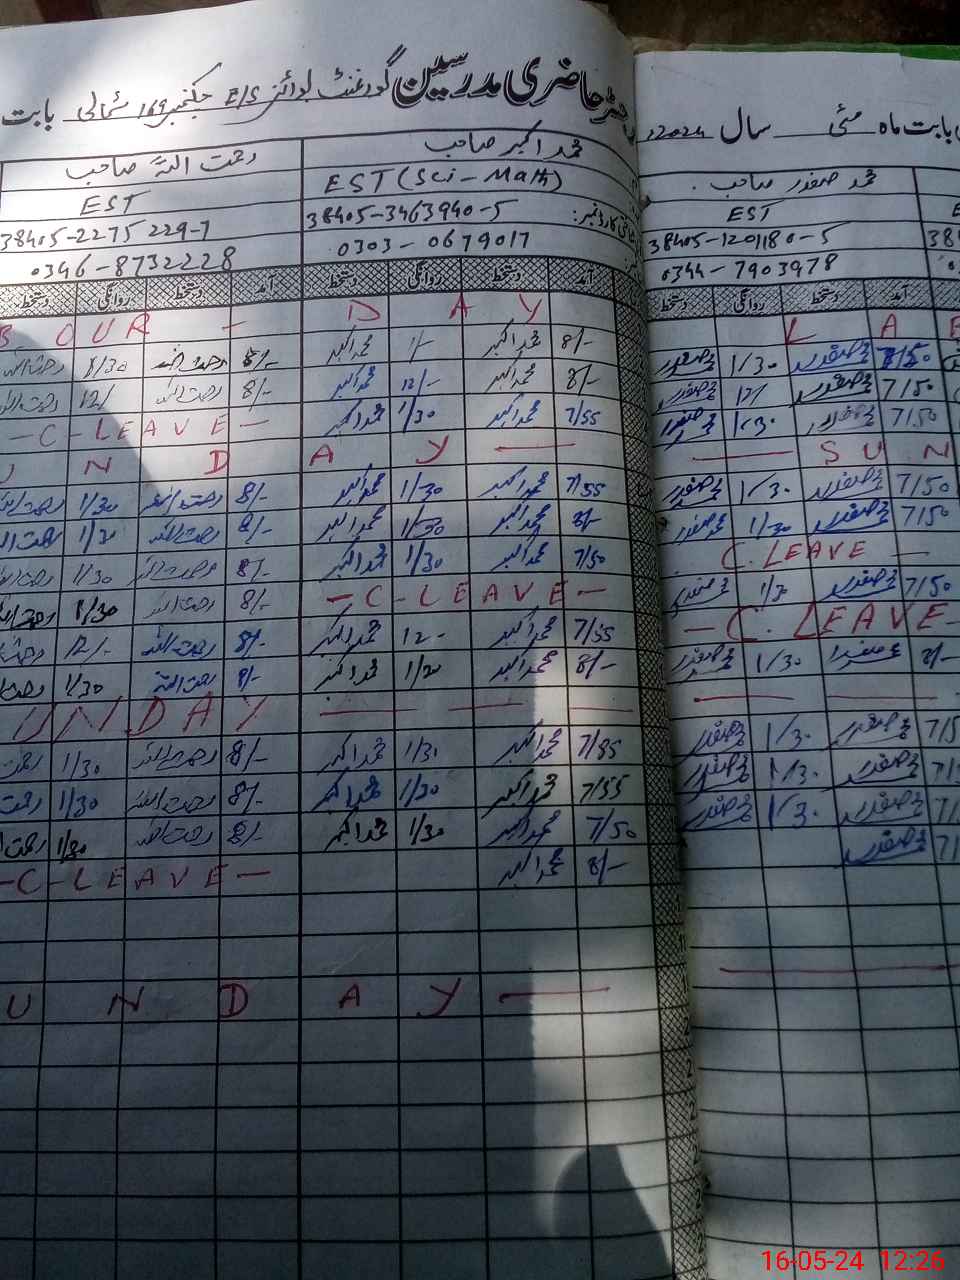 رجسٹر حاضری مدرسین گورنمنٹ بوائز E/S چکنمبر 169 شمالی بابت
بابت ماہ مئی سال 2024
محمد اکبر صاحب رحمت اللہ صاحب
EST (Sci - Math) EST
38405-3463940-5 38405-2275229-7
0303-0679017 0346-8732228
محمد صفدر صاحب
EST
38405-1201180-5
0344-7903978
آمد دستخط روانگی دستخط آمد دستخط روانگی دستخط
آمد دستخط روانگی دستخط
BOUR - DAY
8/- محمد اکبر 1/- محمد اکبر 8/- رحمت اللہ 1/30 رحمت اللہ
8/- محمد اکبر 12/- محمد اکبر 8/- رحمت اللہ 12/ رحمت اللہ
7/55 محمد اکبر 1/30 محمد اکبر - C - LEAVE -
UND AY —
7/55 محمد اکبر 1/30 محمد اکبر 8/- رحمت اللہ 1/30 رحمت اللہ
8/- محمد اکبر 1/30 محمد اکبر 8/- رحمت اللہ 1/30 رحمت اللہ
7/50 محمد اکبر 1/30 محمد اکبر 8/- رحمت اللہ 1/30 رحمت اللہ
- C - LEAVE - 8/- رحمت اللہ 1/30 رحمت اللہ
7/55 محمد اکبر 12- محمد اکبر 8/- رحمت اللہ 12/- رحمت اللہ
8/- محمد اکبر 1/30 محمد اکبر 8/- رحمت اللہ 1/30 رحمت اللہ
UNDAY — — —
7/55 محمد اکبر 1/30 محمد اکبر 8/- رحمت اللہ 1/30 رحمت
7/55 محمد اکبر 1/30 محمد اکبر 8/- رحمت اللہ 1/30 رحمت
7/50 محمد اکبر 1/30 محمد اکبر 8/- رحمت اللہ 1/30 رحمت
8/- محمد اکبر - C - LEAVE -
UNDAY —
LAB
محمد صفدر 1/30 محمد صفدر
7/50 محمد صفدر 12/ محمد صفدر
7/50 محمد صفدر 1/30 محمد صفدر
— SUN
7/50 محمد صفدر 1/30 محمد صفدر
7/50 محمد صفدر 1/30 محمد صفدر
C. LEAVE —
7/50 محمد صفدر 1/30 محمد صفدر
- C. LEAVE -
8/- محمد صفدر 1/30 محمد صفدر
محمد صفدر 1/30 محمد صفدر
محمد صفدر 1/30 محمد صفدر
محمد صفدر 1/30 محمد صفدر
محمد صفدر
16-05-24 12:26